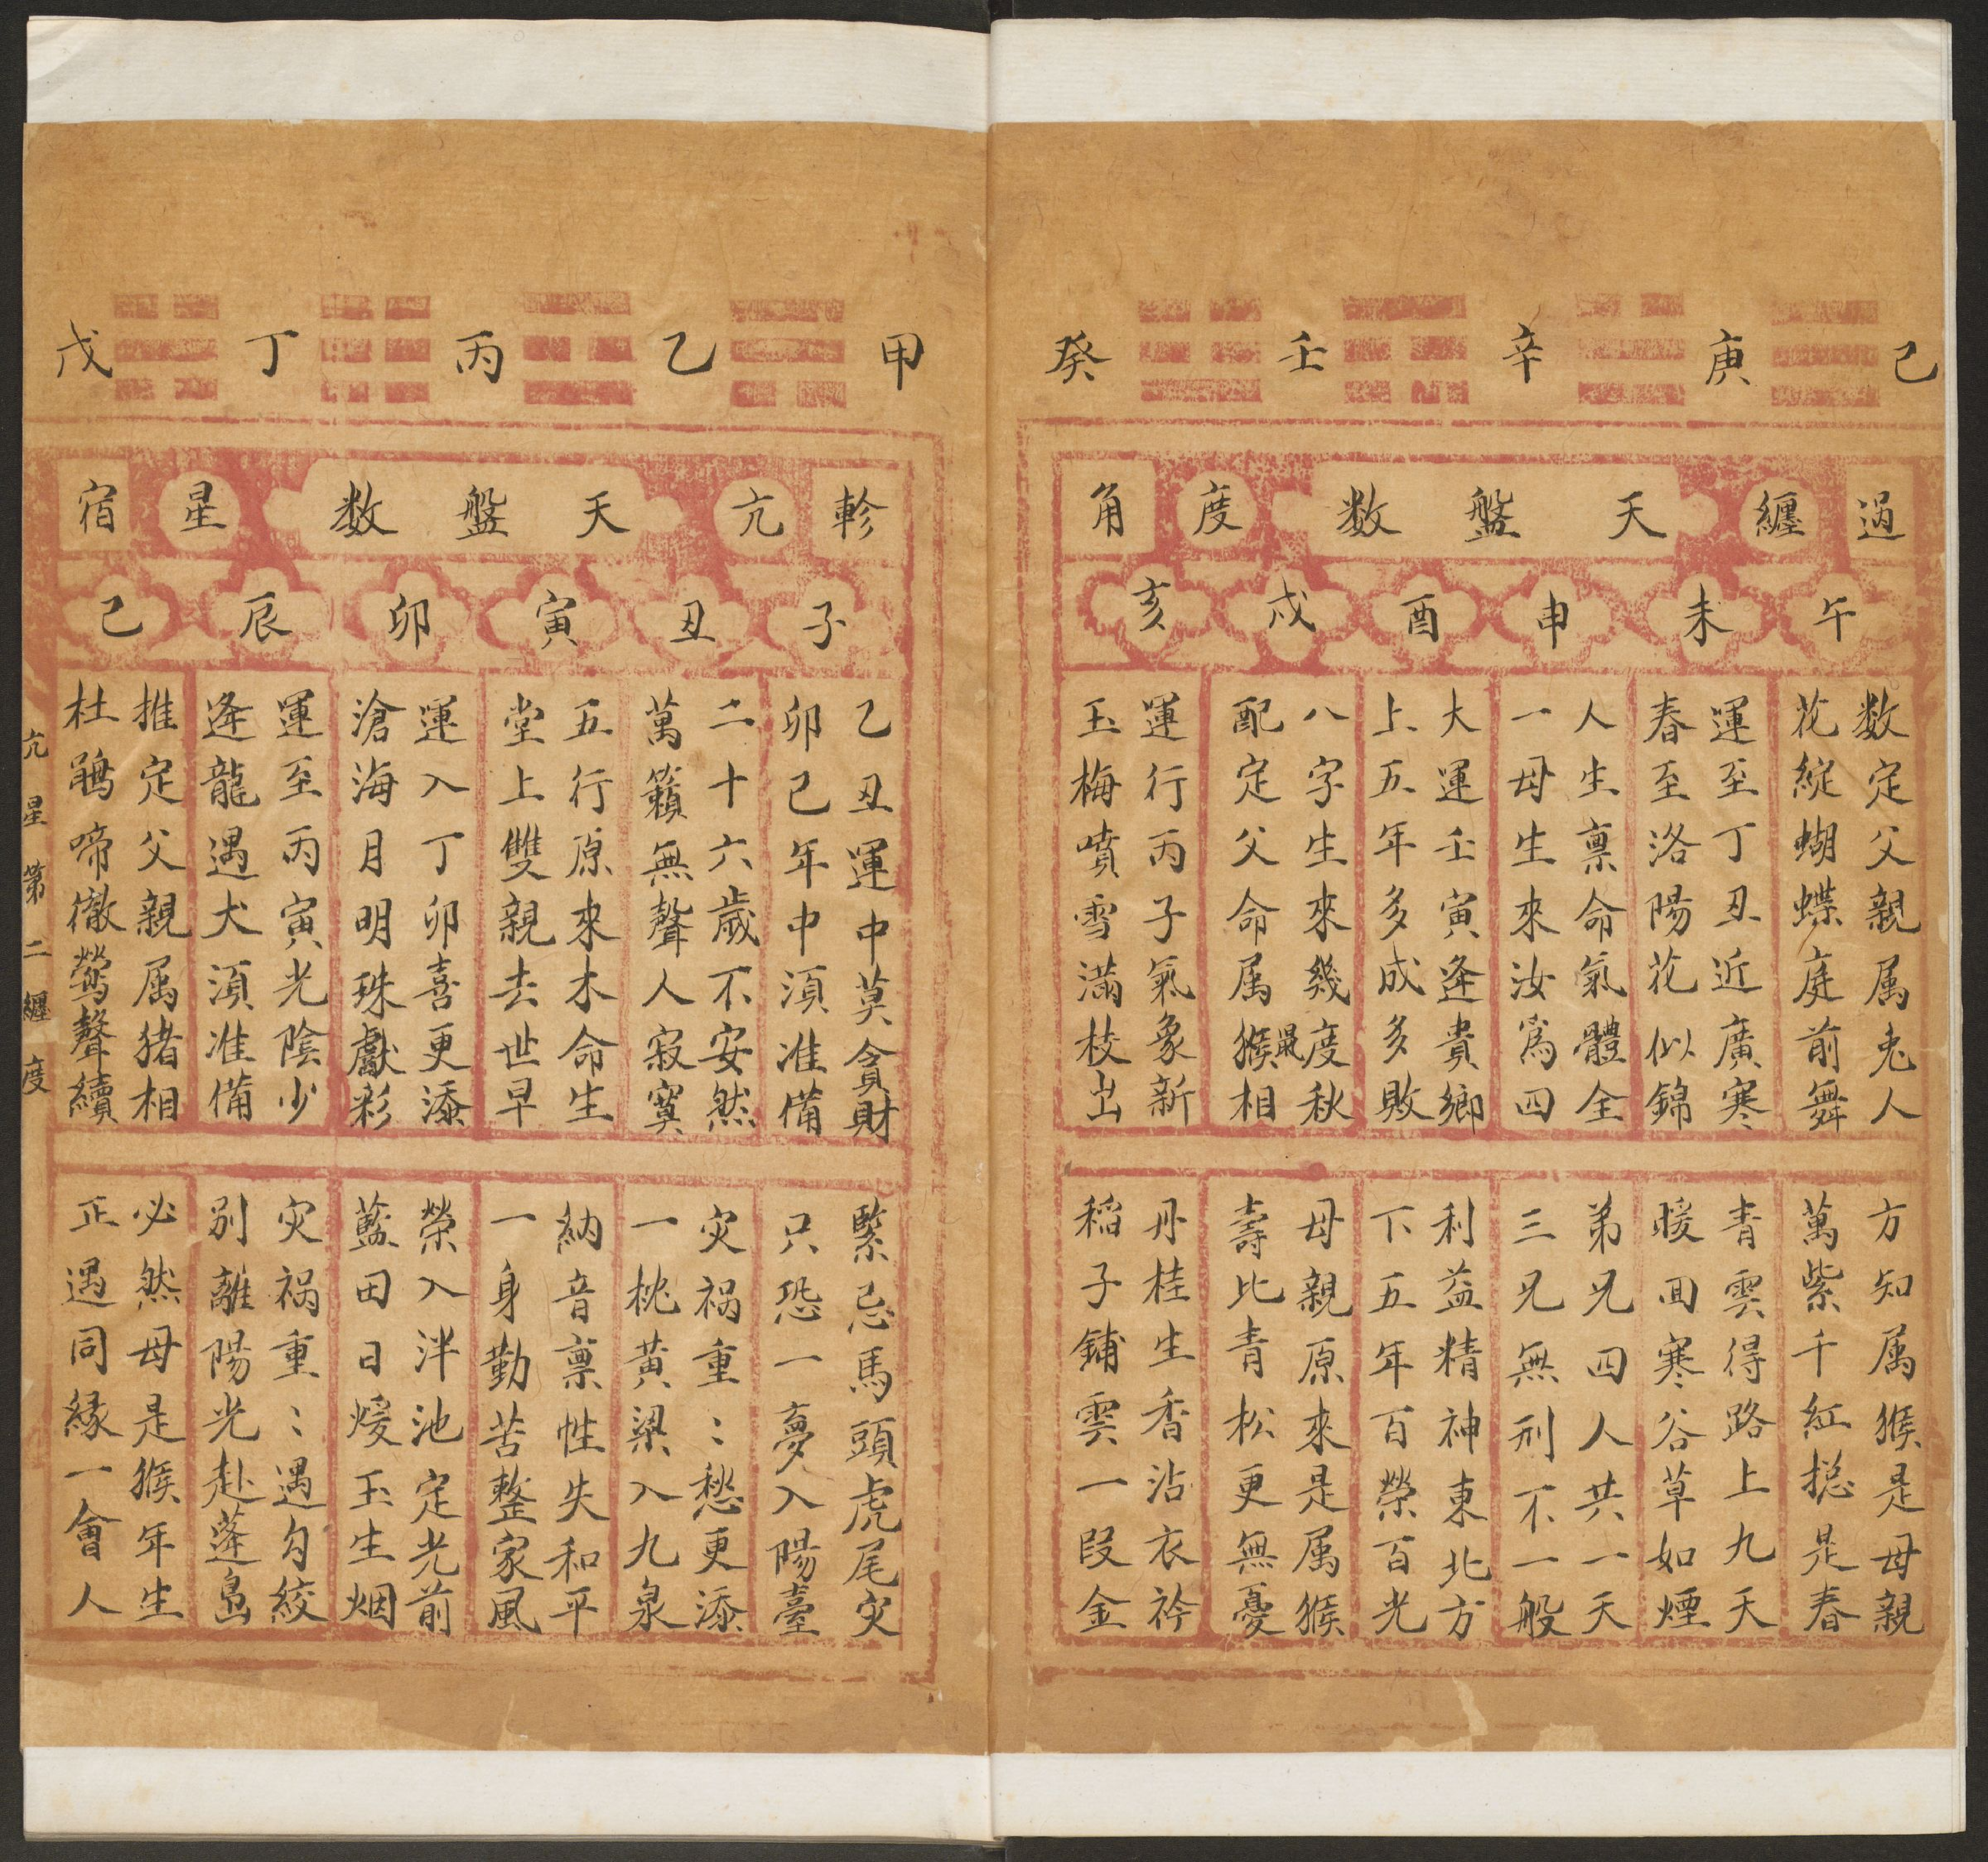 己 庚 辛 壬 癸
過 纏 天盤数 度 角
午 未 申 酉 戌 亥
数定父親属兎人
花綻蝴蝶庭前舞
運至丁丑近廣寒
春至洛陽花似錦
人生禀命氣體全
一母生來汝爲四
大運壬寅逢貴鄉
上五年多成多敗
八字生來幾度秋
配定父命属猴相
運行丙子氣象新
玉梅噴雪滿枝出
方知属猴是母親
萬紫千紅捴是春
青雲得路上九天
暖回寒谷草如煙
弟兄四人共一天
三兄無刑不一般
利益精神東北方
下五年百榮百光
母親原來是属猴
壽比青松更無憂
丹桂生香沾衣衿
稻子鋪雲一段金
甲 乙 丙 丁 戊
軫 亢 天盤数 星 宿
子 丑 寅 卯 辰 己
乙丑運中莫貪財
卯己年中湏准備
二十六歲不安然
萬籟無聲人寂寞
五行原來木命生
堂上雙親去世早
運入丁卯喜更添
滄海月明珠獻彩
運至丙寅光陰少
逢龍遇犬湏准備
推定父親属猪相
杜鵑啼徹鶯聲續
緊忌馬頭虎尾灾
只恐一夢入陽臺
灾祸重〻愁更添
一枕黃梁入九泉
納音禀性失和平
一身勤苦整家風
榮入泮池定光前
藍田日煖玉生烟
灾祸重〻遇勾絞
別離陽光赴蓬島
必然母是猴年生
正遇同緣一會人
亢星第二纏度